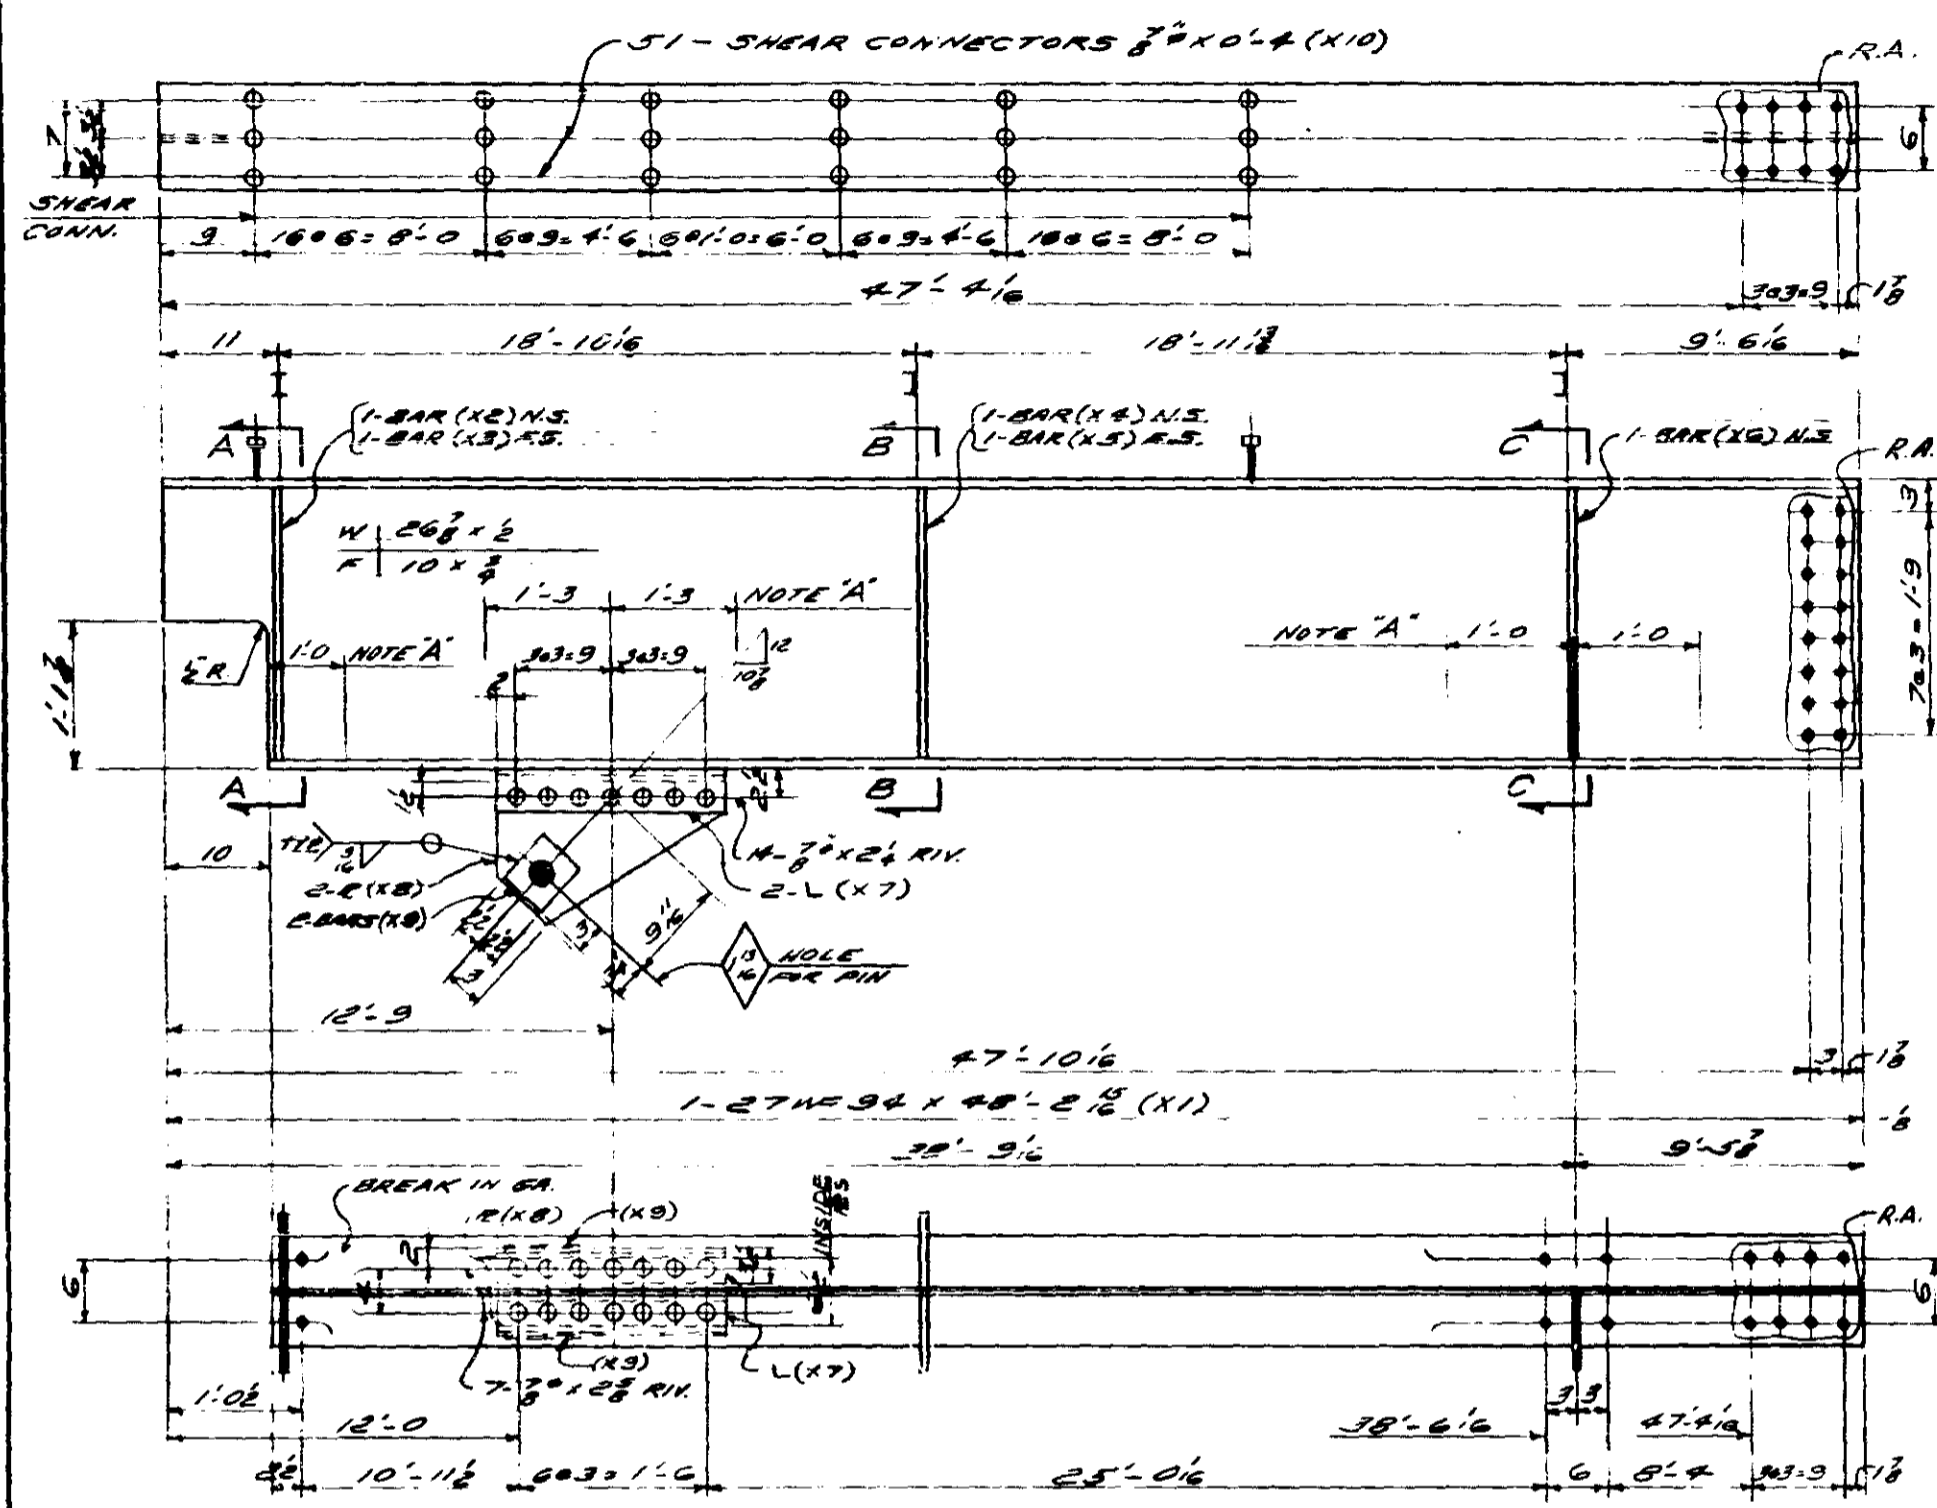 51 - SHEAR CONNECTORS 7/8"ø x 0'-4 (X10)
R.A.
7
6
SHEAR
CONN.
9
16@6= 8'-0
6@9= 4'-6
6@1'-0= 6'-0
6@9= 4'-6
16@6= 8'-0
47'-4 1/16
3@3=9
1 7/8
11
18'-10 1/16
18'-11 13/16
9'-6 1/16
1-BAR (X2) N.S.
1-BAR (X3) F.S.
1-BAR (X4) N.S.
1-BAR (X5) F.S.
1-BAR (X6) N.S.
A
B
C
R.A.
3
W 26 7/8 x 1/2
F 10 x 3/4
1'-3
1'-3
NOTE "A"
12
10 7/8
NOTE "A"
1'-0
1'-0
1'-0
NOTE "A"
3@3=9
3@3=9
2
1/2 R.
7@3=1'-9
A
1 1/2
2 1/2
B
C
10
TYP.
5/16
14-7/8"ø x 2 1/4 RIV.
2-PL (X8)
2-L (X7)
2-BARS (X9)
2 1/2
2 1/2
3
3
9 11/16
1 13/16
HOLE
FOR PIN
12'-9
47'-10 1/16
3
1 7/8
1-27WF94 x 48'-2 15/16 (X1)
1/8
38'-9 1/16
9'-5 7/8
BREAK IN GA.
PL (X8)
(X9)
INSIDE
R.A.
6
2
4
6
(X9)
L (X7)
7-7/8"ø x 2 5/8 RIV.
1'-0 1/2
12'-0
3
3
38'-6 1/16
47'-4 1/16
2 1/2
10'-11 1/2
6@3= 1'-6
25'-0 1/16
6
8'-4
3@3=9
1 7/8